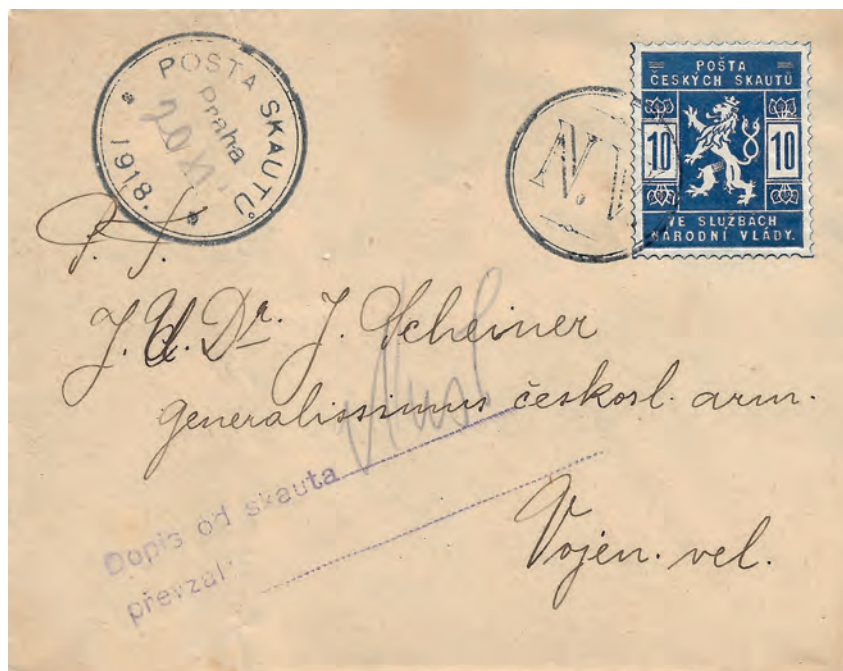 POŠTA SKAUTŮ
Praha
20 XI
1918.
N.V
POŠTA
ČESKÝCH SKAUTŮ
10 10
VE SLUŽBÁCH
NÁRODNÍ VLÁDY.
P. T.
J.U.Dr. J. Scheiner
generalissimus českosl. arm.
Vojen. vel.
Dopis od skauta
převzal: